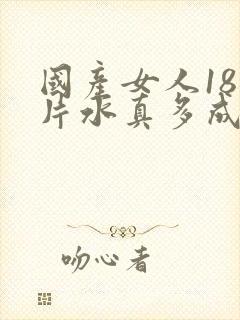 國產女人18
片水真多成
吻心者